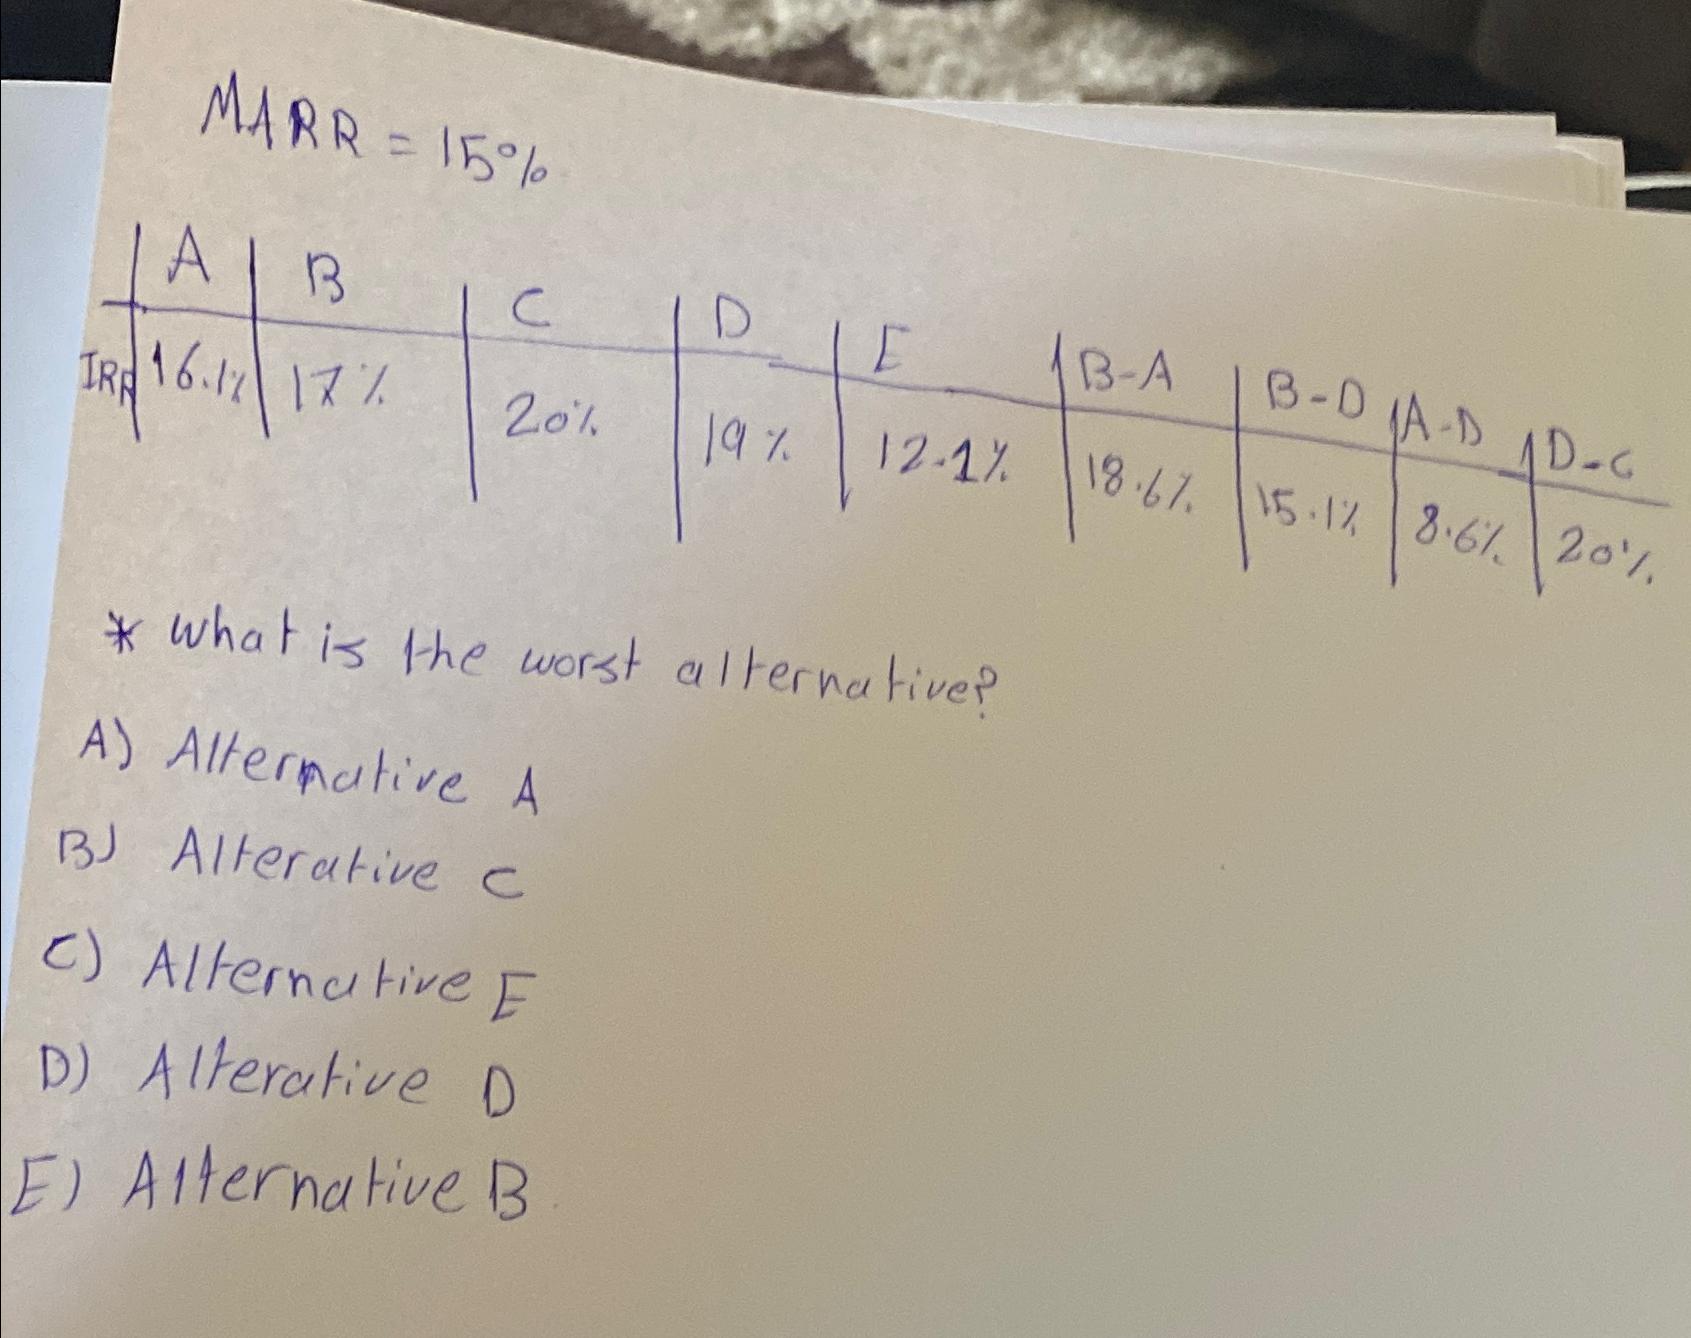 MARR = 15%
A B C D E B-A B-D A-D D-C
IRR 16.1% 17% 20% 19% 12.1% 18.6% 15.1% 8.6% 20%
* What is the worst alternative?
A) Alternative A
B) Alterative C
C) Alternative E
D) Alterative D
E) Alternative B